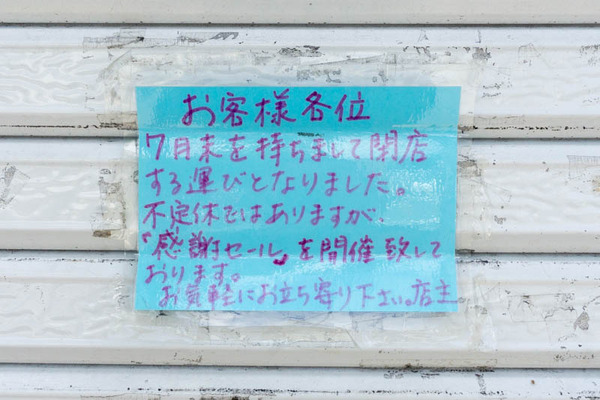 お客様各位
7月末を持ちまして閉店
する運びとなりました。
不定休ではありますが、
"感謝セール"を開催致して
おります。
お気軽にお立ち寄り下さい。店主